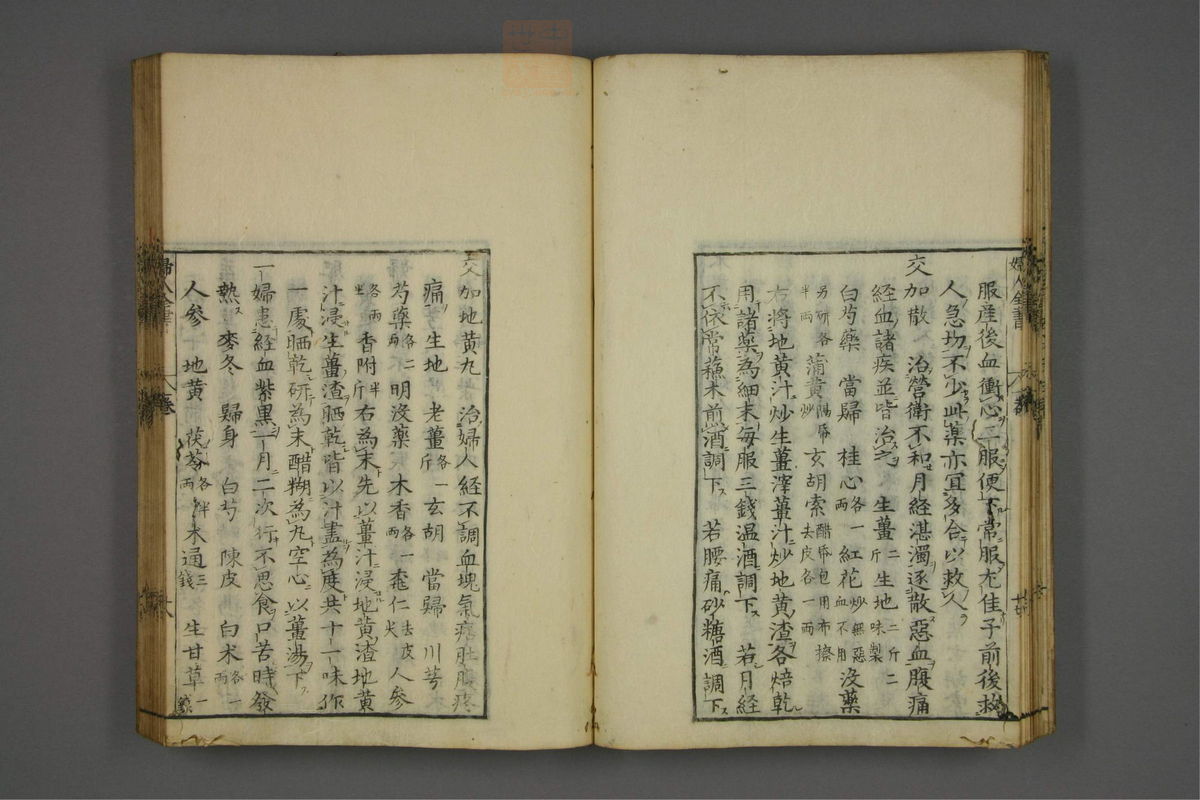 服產後血衝心二服便下常服尤佳子前後救
人急切不少此藥亦宜多合以救人
交加散 治營衛不和月経湛濁逐散惡血腹痛
経血諸疾並皆治之 生薑二斤 生地二斤二味製
白芍藥 當歸 桂心各一兩 紅花炒無惡血不用 沒藥
另研各半兩 蒲黃隔帋炒 玄胡索醋帋包用布擦去皮各一兩
右將地黃汁炒生薑滓薑汁炒地黃渣各焙乾
用諸藥為細末每服三錢温酒調下 若月経
不依常蘇木煎酒調下 若腰痛砂糖酒調下
交加地黃丸 治婦人経不調血塊氣痞肚腹疼
痛 生地 老薑各一斤 玄胡 當歸 川芎
芍藥各二兩 明沒藥 木香各一兩 桃仁去皮尖 人參
各半兩 香附半斤 右為末先以薑汁浸地黃渣地黃
汁浸生薑渣晒乾皆以汁盡為度共十一味作
一處晒乾研為末醋糊為丸空心以薑湯下
一婦患経血紫黑一月二次行不思食口苦時發
熱 麥冬 歸身 白芍 陳皮 白术各一兩
人參 地黃 茯苓各半兩 木通三錢 生甘草一錢
婦人全書
八卷
婦人全書
八卷